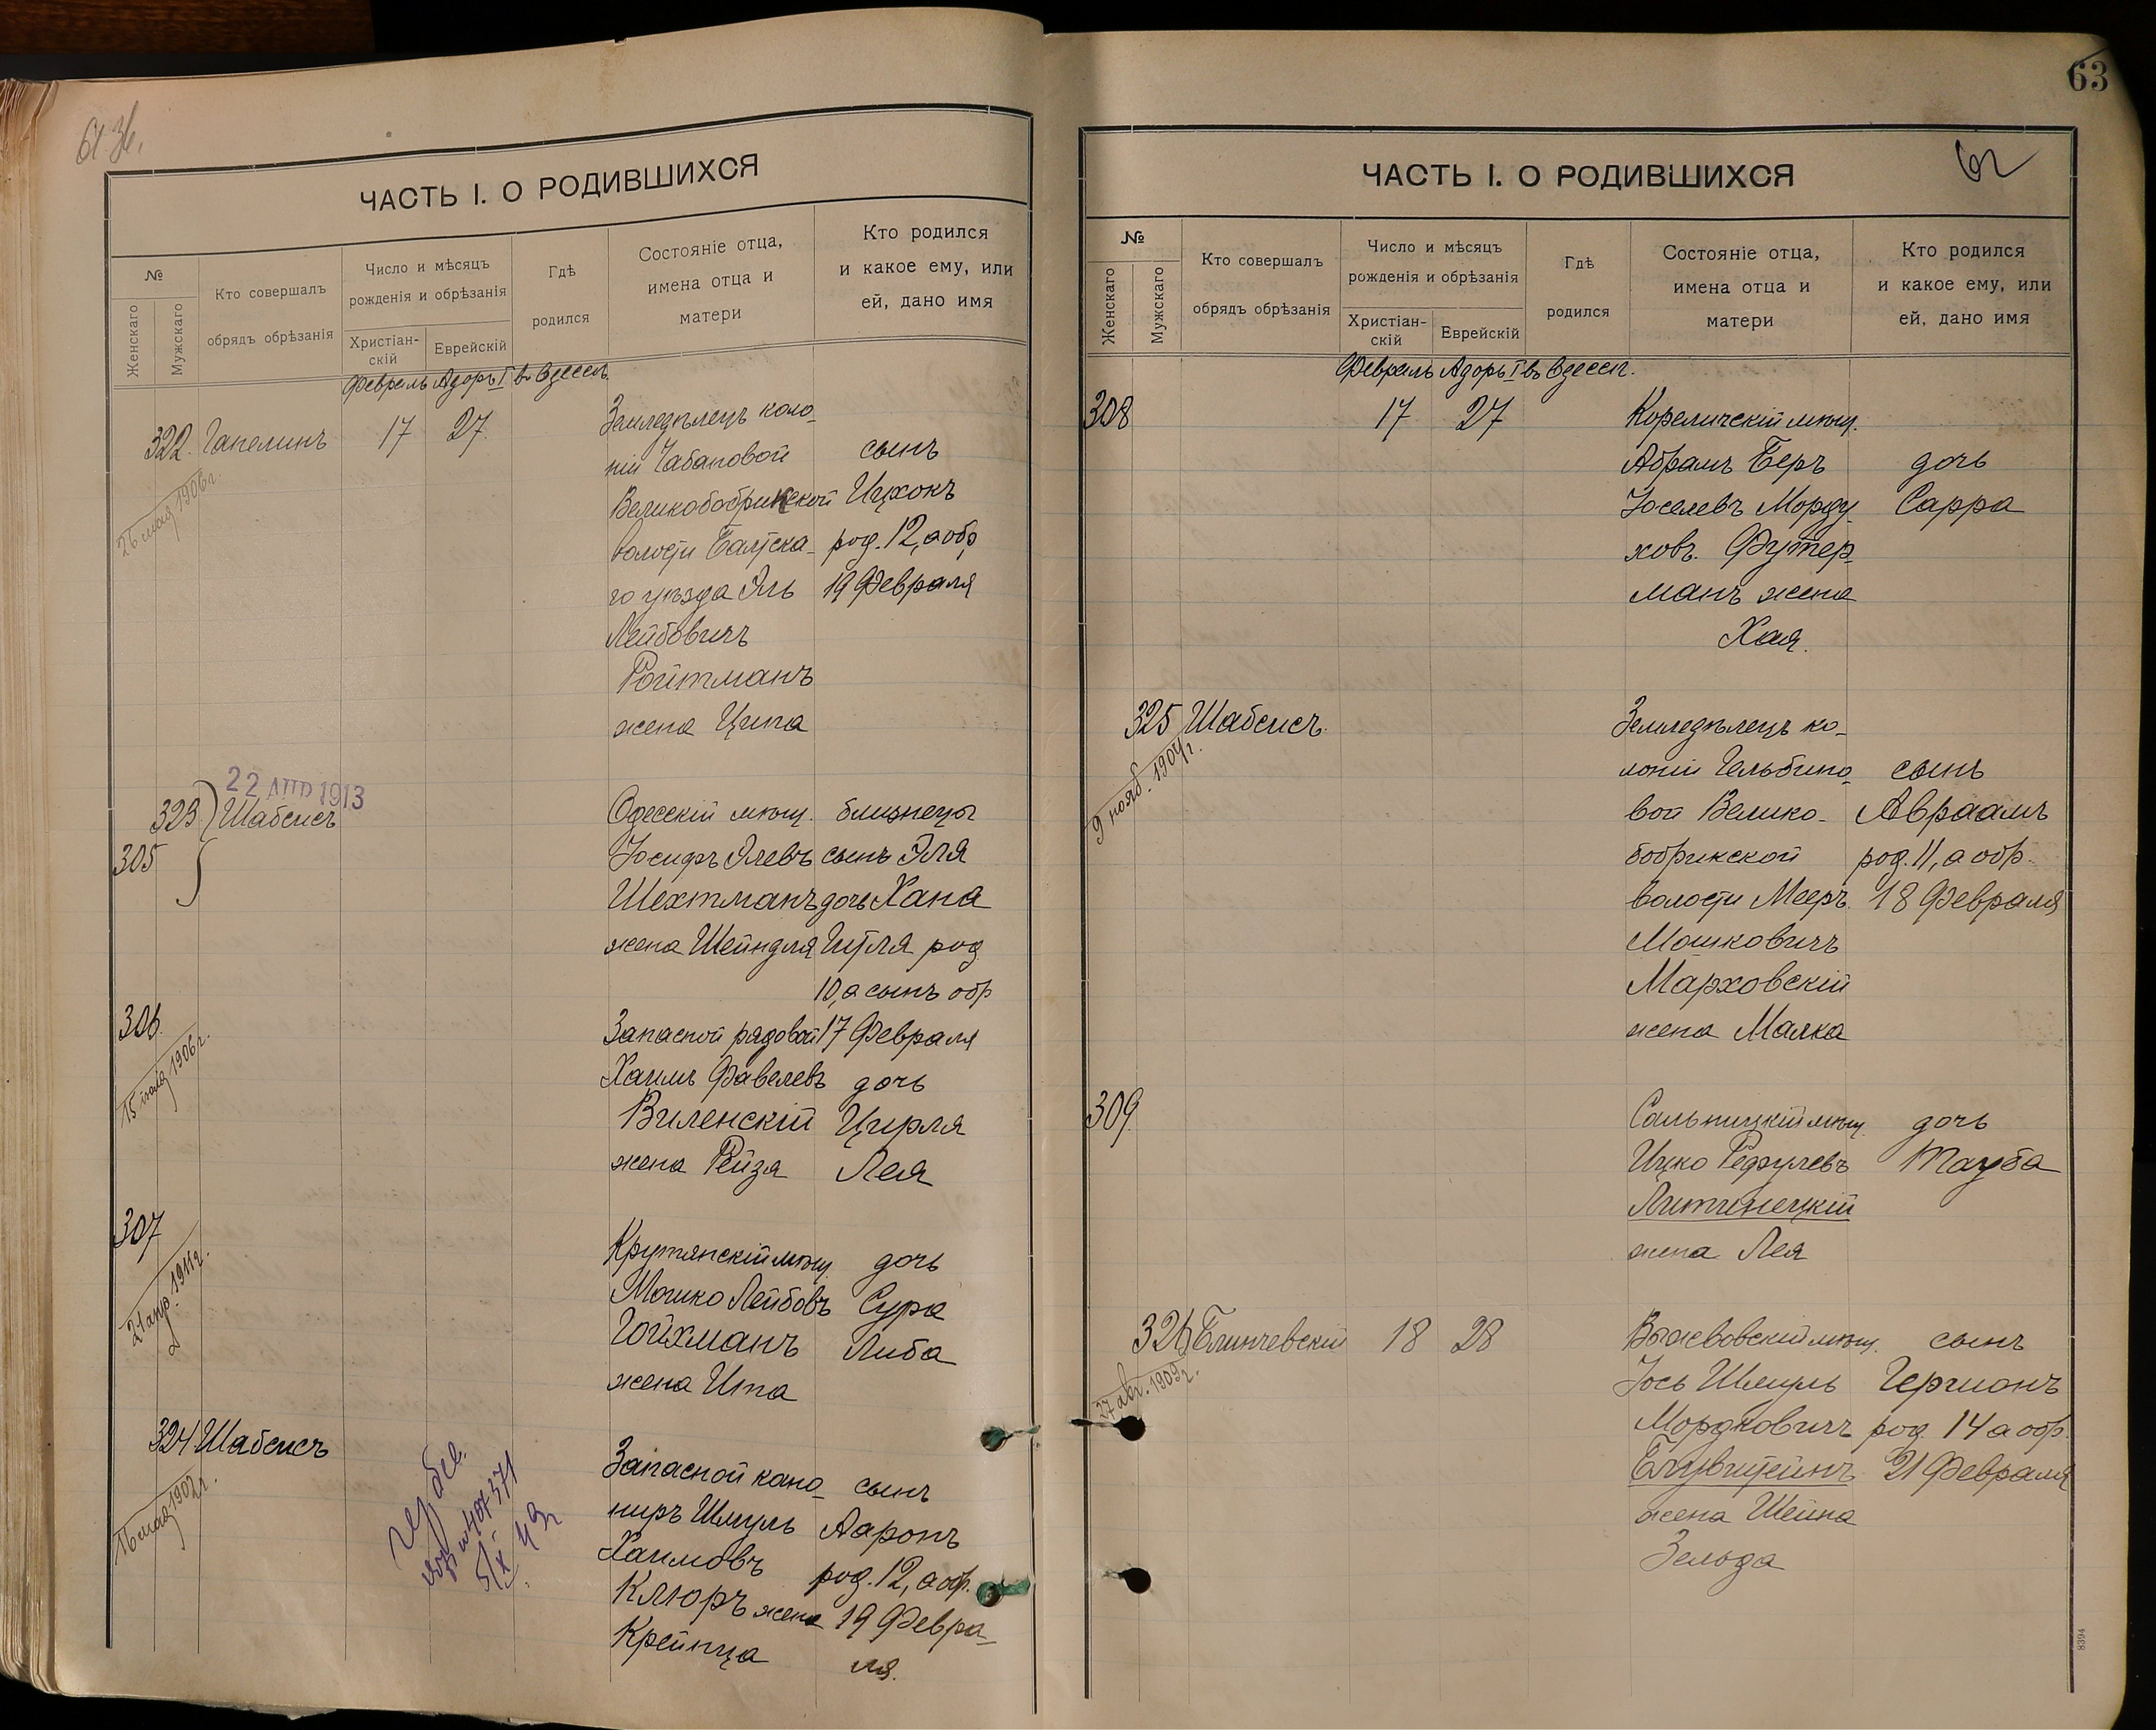 ЧАСТЬ I. О РОДИВШИХСЯ
№
Женскаго
Мужскаго
Кто совершалъ
обрядъ обрѣзанія
Число и мѣсяцъ
рожденія и обрѣзанія
Христіан-
скій
Еврейскій
Гдѣ
родился
Состояніе отца,
имена отца и
матери
Кто родился
и какое ему, или
ей, дано имя
Февраль Адоръ I въ Одессѣ.
322. Гапелинъ 17 27.
26 мая 1906 г.
Земледѣлецъ коло-
ніи Чабановой
Великобобрикской
волости Балтска-
го уѣзда Эль
Лейбовичъ
Ройтманъ
жена Ципа
сынъ
Ицхокъ
род. 12, а обр
19 Февраля
22 АПР 1913
323 Шабсисъ
305
Одесскій мѣщ.
Іосифъ Элевъ
Шехтманъ
жена Шейндля
близнецы
сынъ Эля
дочь Хана
Гитля род
10, а сынъ обр
17 Февраля
306.
15 1906 г.
Запасной рядовой
Хаимъ Фавелевъ
Виленскій
жена Рейзя
дочь
Цирля
Лея
307
21 апр. 1911 г.
Крутянскій мѣщ.
Мошко Лейбовъ
Гойхманъ
жена Ита
дочь
Сура
Либа
324 Шабсисъ
16 мая 1907 г.
Запасной кано-
ниръ Шмуль
Хаимовъ
Клюръ жена
Крейнца
сынъ
Ааронъ
род. 12, а обр.
19 Февра-
ля.
63
ЧАСТЬ I. О РОДИВШИХСЯ
62
№
Женскаго
Мужскаго
Кто совершалъ
обрядъ обрѣзанія
Число и мѣсяцъ
рожденія и обрѣзанія
Христіан-
скій
Еврейскій
Гдѣ
родился
Состояніе отца,
имена отца и
матери
Кто родился
и какое ему, или
ей, дано имя
Февраль Адоръ I въ Одессѣ.
308 17 27
Кореличскій мѣщ.
Абрамъ Беръ
Іоселевъ Морду-
ховъ. Футер-
манъ жена
Хая.
дочь
Сарра
325 Шабсисъ
9 нояб. 1904 г.
Земледѣлецъ ко-
лоніи Гельбино-
вой Велико-
бобрикской
волости Мееръ
Мошковичъ
Марховскій
жена Малка
сынъ
Авраамъ
род. 11, а обр.
18 Февраля
309
Сальницкій мѣщ.
Ицко Рефулевъ
Литинецкій
жена Лея
дочь
Тауба
326 Блинчевскій 18 28
27 авг. 1909 г.
мѣщ.
Іось Шмуль
Мордковичъ
жена Шейна
Зельда
сынъ
Гершонъ
род. 14 а обр.
21 Февраля
8394